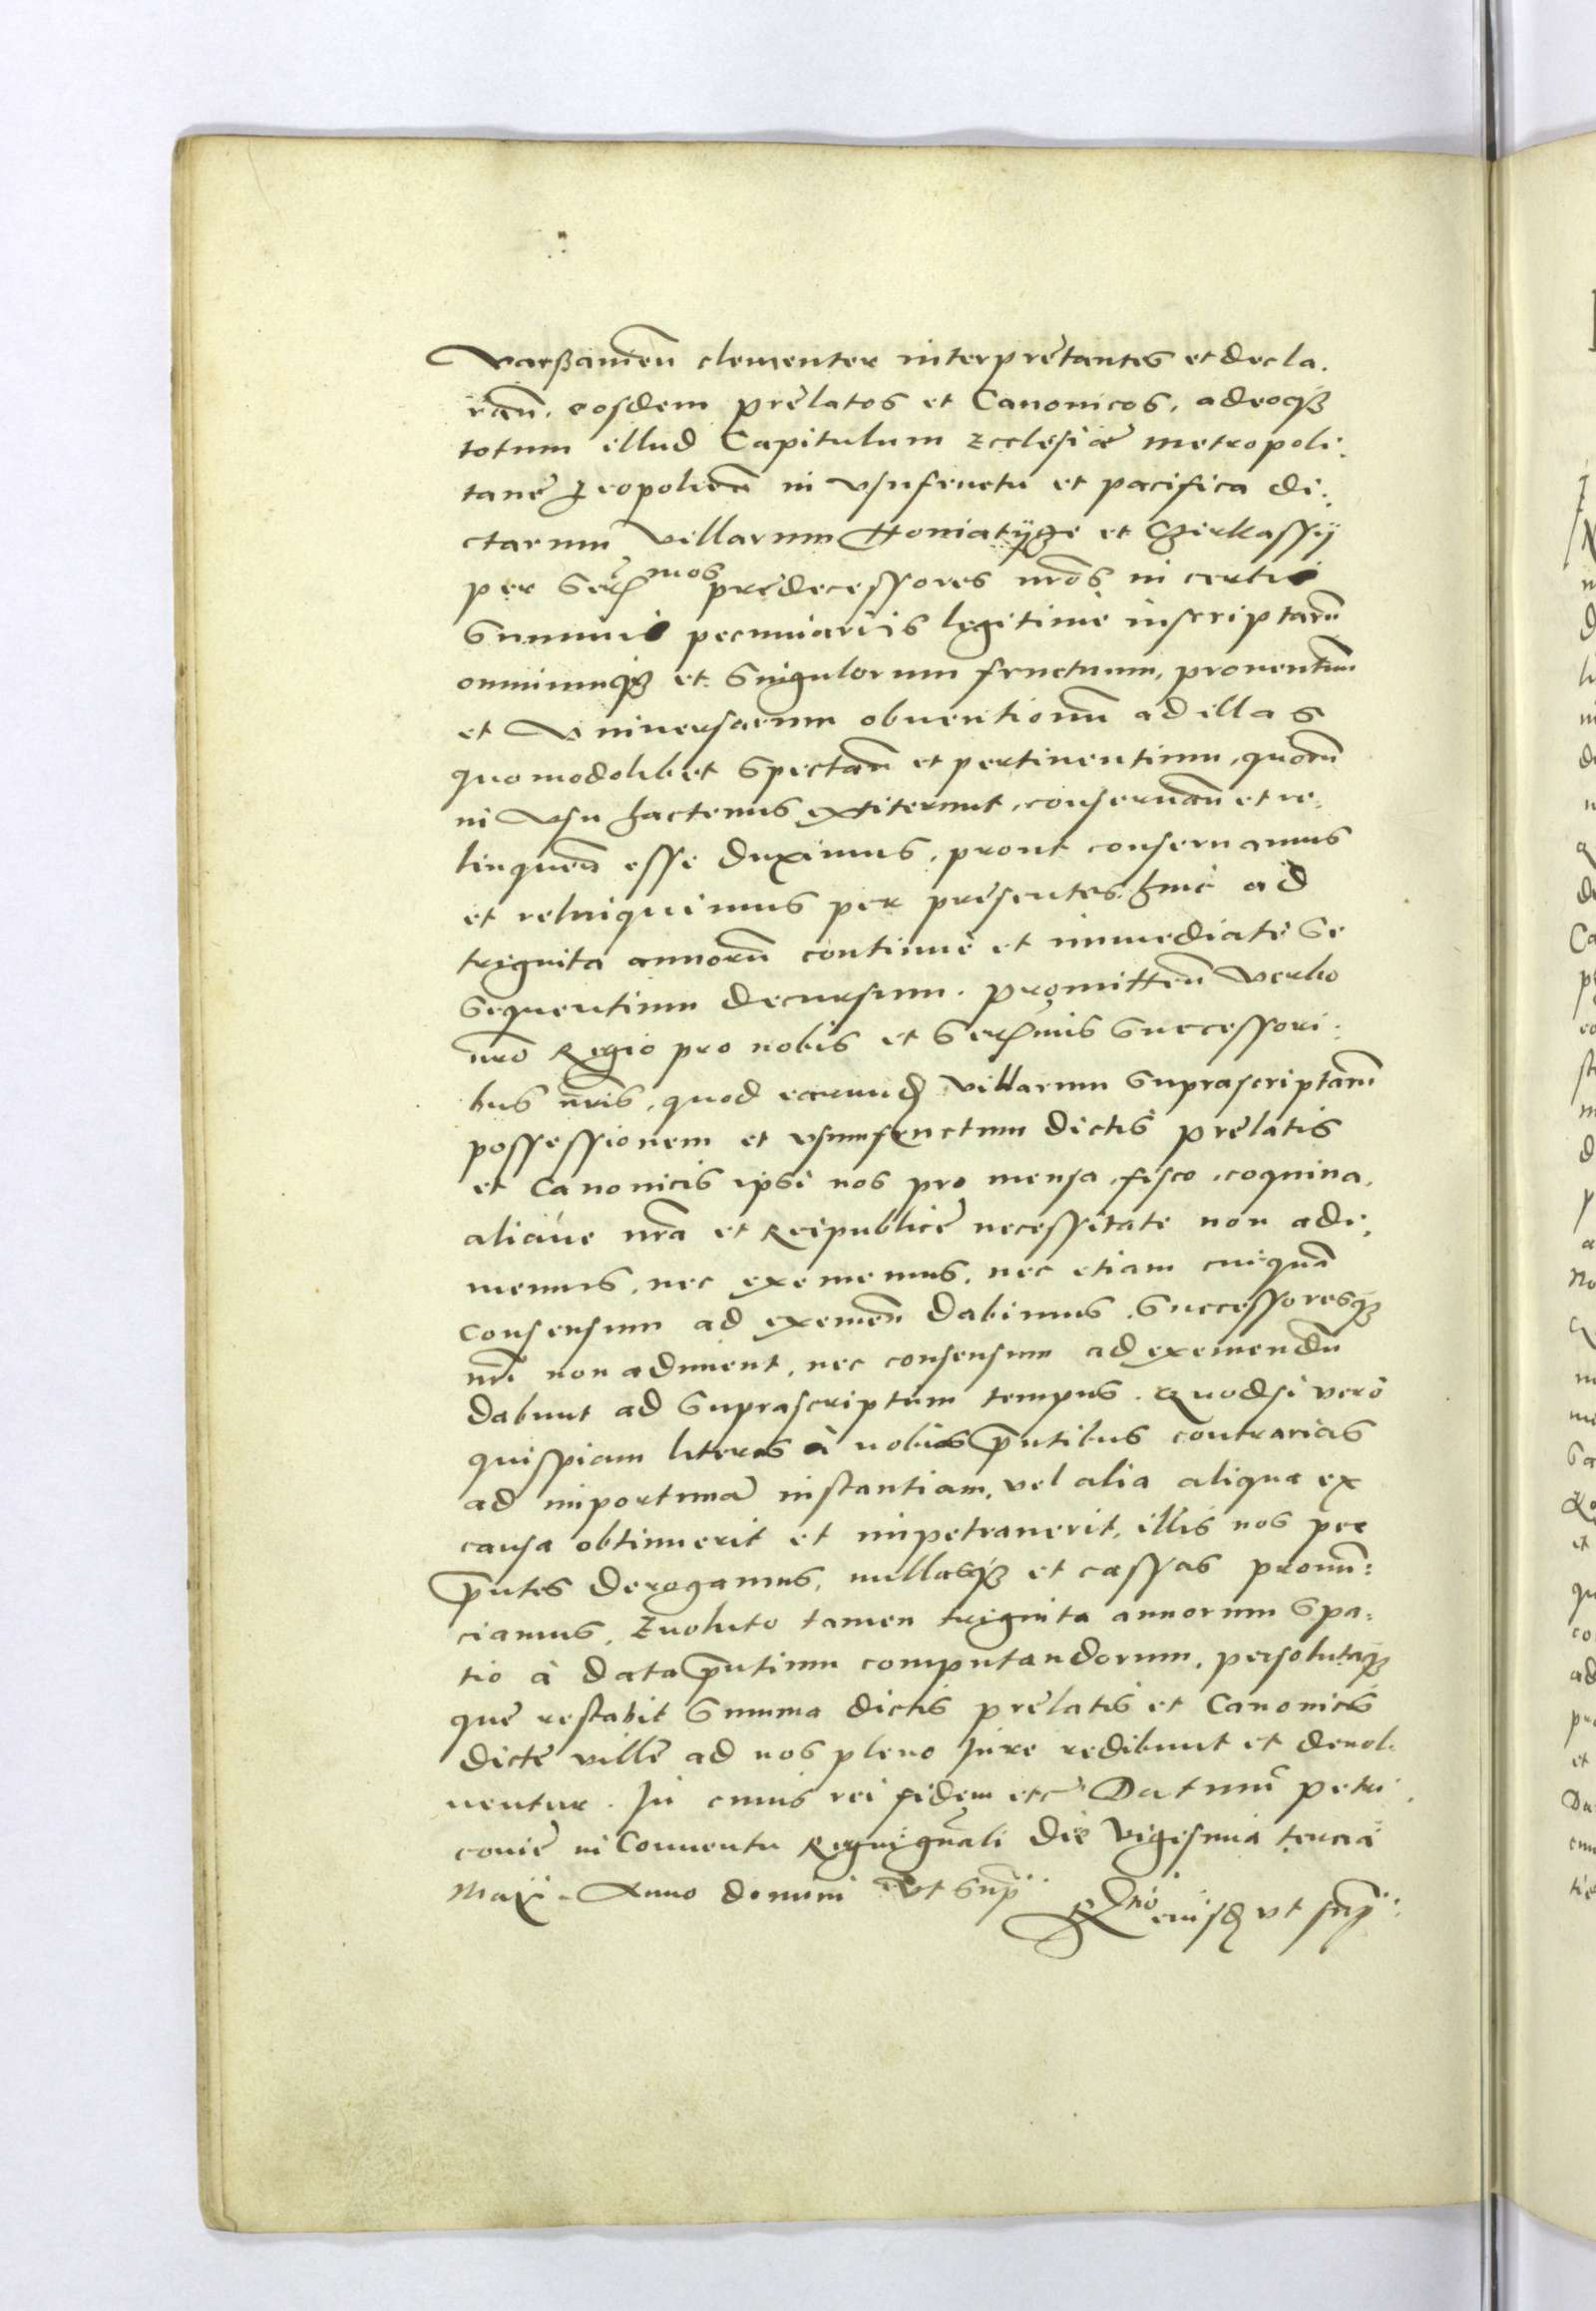 Varßamen̄ clementer interpretantes et decla.
ran̄. eosdem prelatos et Canonicos, adeoq₃
totum illud Capitulum Ecclesiæ metropoli:
tanę Leopolien̄ in vsufructu et pacifica di:
ctarum villarum Honiatÿcze et Czerkassÿ
per Serᵐᵒˢ prędecessores nr̄os in certis
Summis pecuniariis legitimè inscriptarū
omniumq₃ et Singulorum fructuum, prouentuum
et Vniuersarum obuentionū ad illas
quomodolibet Spectan̄ et pertinentium, quorū
in vsu hactenus extiterunt, conseruan̄ et re,
linquen̄ esse duximus, prout conseruamus
et relinquimus per presentes, hinc ad
triginta annorū continuè et immediatè Se
Sequentium decursum. Promitten̄ verbo
nr̄o Regio pro nobis et Serᵐis Successori:
bus nr̄is, quod earund̄ villarum Suprascriptarū
possessionem et vsumfructum dictis prelatis
et Canonicis ipsi nos pro mensa, fisco, coquina,
aliaúe nr̄a et Reipublicę necessitate non adi,
memus, nec exememus, nec etiam cuiquā
consensum ad eximen̄ dabimus, Successoresq₃
nr̄i non adiment, nec consensum ad eximendū
dabunt ad Suprascriptum tempus. Quodsi verò
quispiam literas à nobis pn̄tibus contrarias
ad importunā instantiam, vel alia aliqua ex
causa obtinuerit et impetrauerit, illis nos per
pn̄tes derogamus, nullasq₃ et cassas pronū:
ciamus, Euoluto tamen triginta annorum Spa:
tio à data pn̄tium computandorum, persolutaq₃
quę restabit Summa dictis pręlatis et Canonicis
dictę villę ad nos pleno Jure redibunt et deuol.
uentur. In cuius rei fidem etc̄ Datum̄ Petri
couię in Conuentu Regni gn̄ali die vigesima tercia
Maÿ. Anno domini vt Sup̄
Rᵗⁱᵒ eiusd̄ vt sup̄: